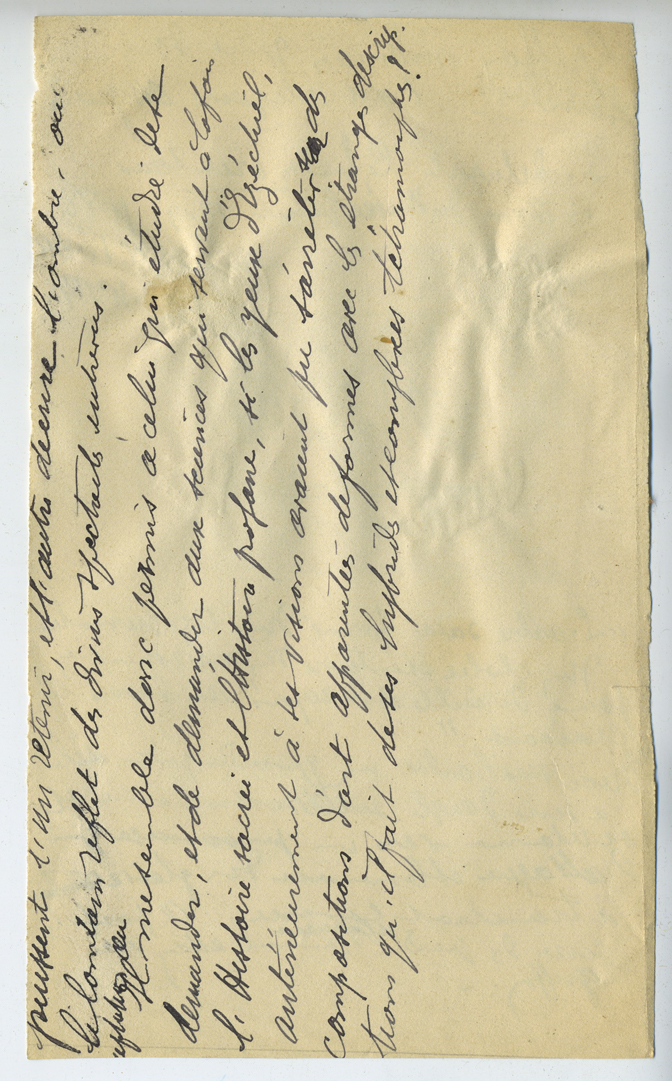 puissent l'un retenir, et l'autre décrire l'ombre, ou
le lointain reflet des divins spectacles entrevus.
Il me semble donc permis à celui qui étudie de se
demander, et de demander aux sciences qui servent à la fois
l'Histoire sacrée et l'Histoire profane, si les yeux d'Ezéchiel,
antérieurement à ses visions avaient pu s'arrêter sur des
compositions d'art apparentées de formes avec les étranges descrip-
tions qu'il fait de ses hybrides et complexes tétramorphes !?